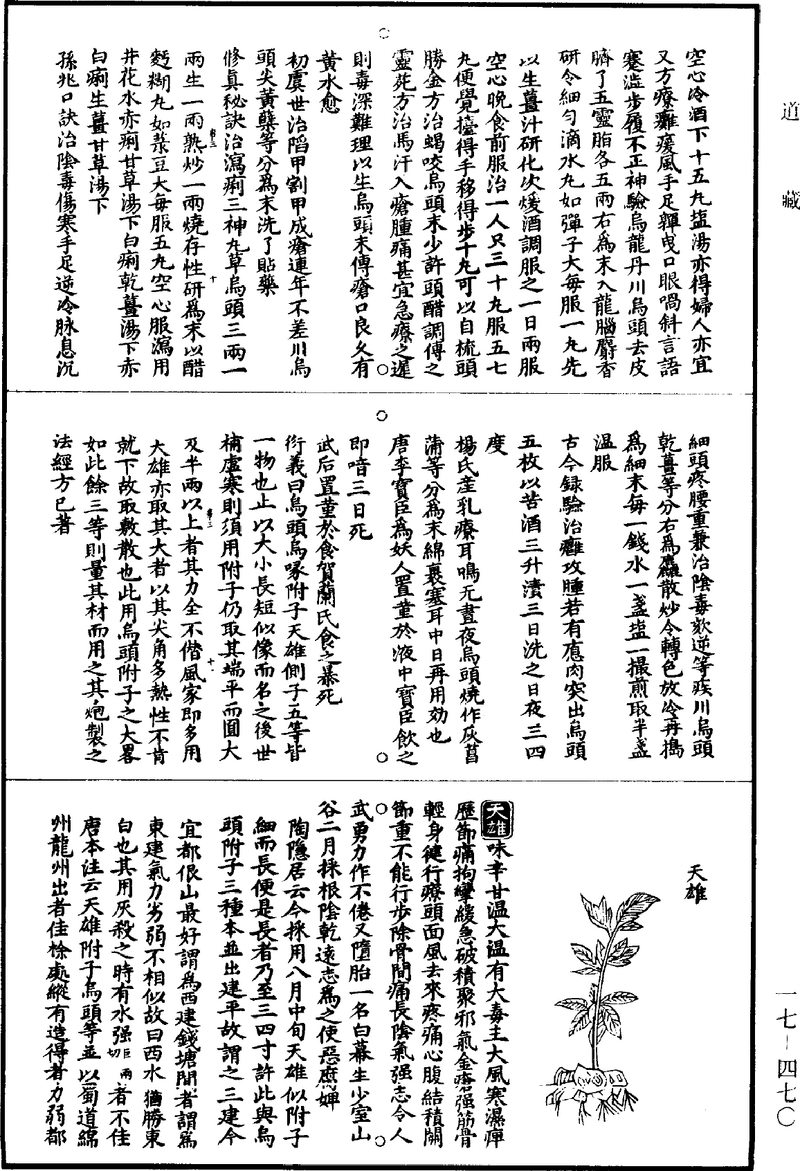 道藏
空心冷酒下十五丸盐湯亦得婦人亦宜
又方療癱瘓風手足嚲曳口眼喎斜言語
蹇澁步履不正神驗烏龍丹川烏頭去皮
臍了五靈脂各五兩右為末入龍腦麝香
研令細勻滴水丸如彈子大每服一丸先
以生薑汁研化次煖酒調服之一日兩服
空心晚食前服治一人只三十九服五七
丸便覺擡得手移得步十丸可以自梳頭
勝金方治蝎咬烏頭末少許頭醋調傅之
靈苑方治馬汗入瘡腫痛甚宜急療之遲
則毒深難理以生烏頭末傅瘡口良久有
黃水愈
初虞世治陷甲割甲成瘡連年不差川烏
頭尖黃蘗等分為末洗了貼藥
修真秘訣治瀉痢三神丸草烏頭三兩一
兩生一兩熟炒一兩燒存性研為末以醋
麪糊丸如菉豆大每服五丸空心服瀉用
井花水赤痢甘草湯下白痢乾薑湯下赤
白痢生薑甘草湯下
孫兆口訣治陰毒傷寒手足逆冷脉息沉
細頭疼腰重兼治陰毒欬逆等疾川烏頭
乾薑等分右為麤散炒令轉色放冷再搗
為細末每一錢水一盞盐一撮煎取半盞
温服
古今錄驗治癰攻腫若有瘜肉突出烏頭
五枚以苦酒三升漬三日洗之日夜三四
度
楊氏産乳療耳鳴无晝夜烏頭燒作灰菖
蒲等分為末綿裹塞耳中日再用効也
唐李寶臣為妖人置堇於液中寶臣飲之
即喑三日死
武后置堇於食賀蘭氏食之暴死
衍義曰烏頭烏喙附子天雄側子五等皆
一物也止以大小長短似像而名之後世
補虛寒則須用附子仍取其端平而圓大
及半兩以上者其力全不僭風家即多用
大雄亦取其大者以其尖角多熱性不肯
就下故取敷散也此用烏頭附子之大畧
如此餘三等則量其材而用之其炮製之
法經方已著
天雄
天雄味辛甘温大温有大毒主大風寒濕痺
歷節痛拘攣緩急破積聚邪氣金瘡强筋骨
輕身健行療頭面風去來疼痛心腹結積關
節重不能行步除骨間痛長陰氣强志令人
武勇力作不倦又隨胎一名白幕生少室山
谷二月採根陰乾遠志為之使惡腐婢
陶隱居云今採用八月中旬天雄似附子
細而長便是長者乃至三四寸許此與烏
頭附子三種本並出建平故謂之三建今
宜都佷山最好謂為西建錢塘間者謂為
東建氣力劣弱不相似故曰西水猶勝東
白也其用灰殺之時有水强巨兩切者不佳
唐本注云天雄附子烏頭等並以蜀道綿
州龍州出者佳餘處縱有造得者力弱都
一七-四七〇